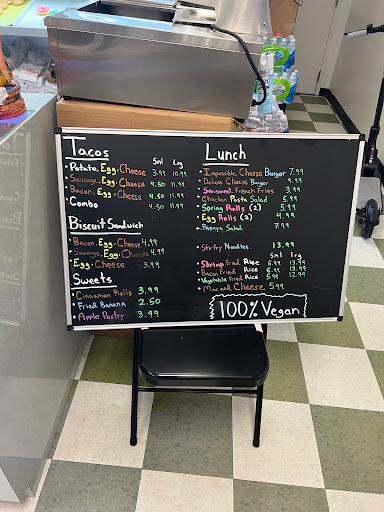 Tacos
Sml Lrg
• Potato, Egg, Cheese 3.99 10.99
• Sausage, Egg, Cheese 4.50 11.99
• Bacon, Egg, Cheese 4.50 11.99
• Combo 4.50 11.99
Biscuit Sandwich
• Bacon, Egg, Cheese 4.99
• Sausage, Egg, Cheese 4.99
• Egg, Cheese 3.99
Sweets
• Cinnamon Rolls 3.99
• Fried Banana 2.50
• Apple Pastry 3.99
Lunch
• Impossible Cheese Burger 7.99
• Deluxe Cheese Burger 9.99
• Seasoned French Fries 3.99
• Chicken Pasta Salad 5.99
• Spring Rolls (2) 5.99
• Egg Rolls (2) 4.99
• Papaya Salad 7.99
• Stir fry Noodles 13.99
Sml Lrg
• Shrimp Fried Rice 6.99 13.99
• Bacon Fried Rice 5.99 12.99
• Vegetable Fried Rice 5.99 12.99
• Mac and Cheese 5.99
100% Vegan